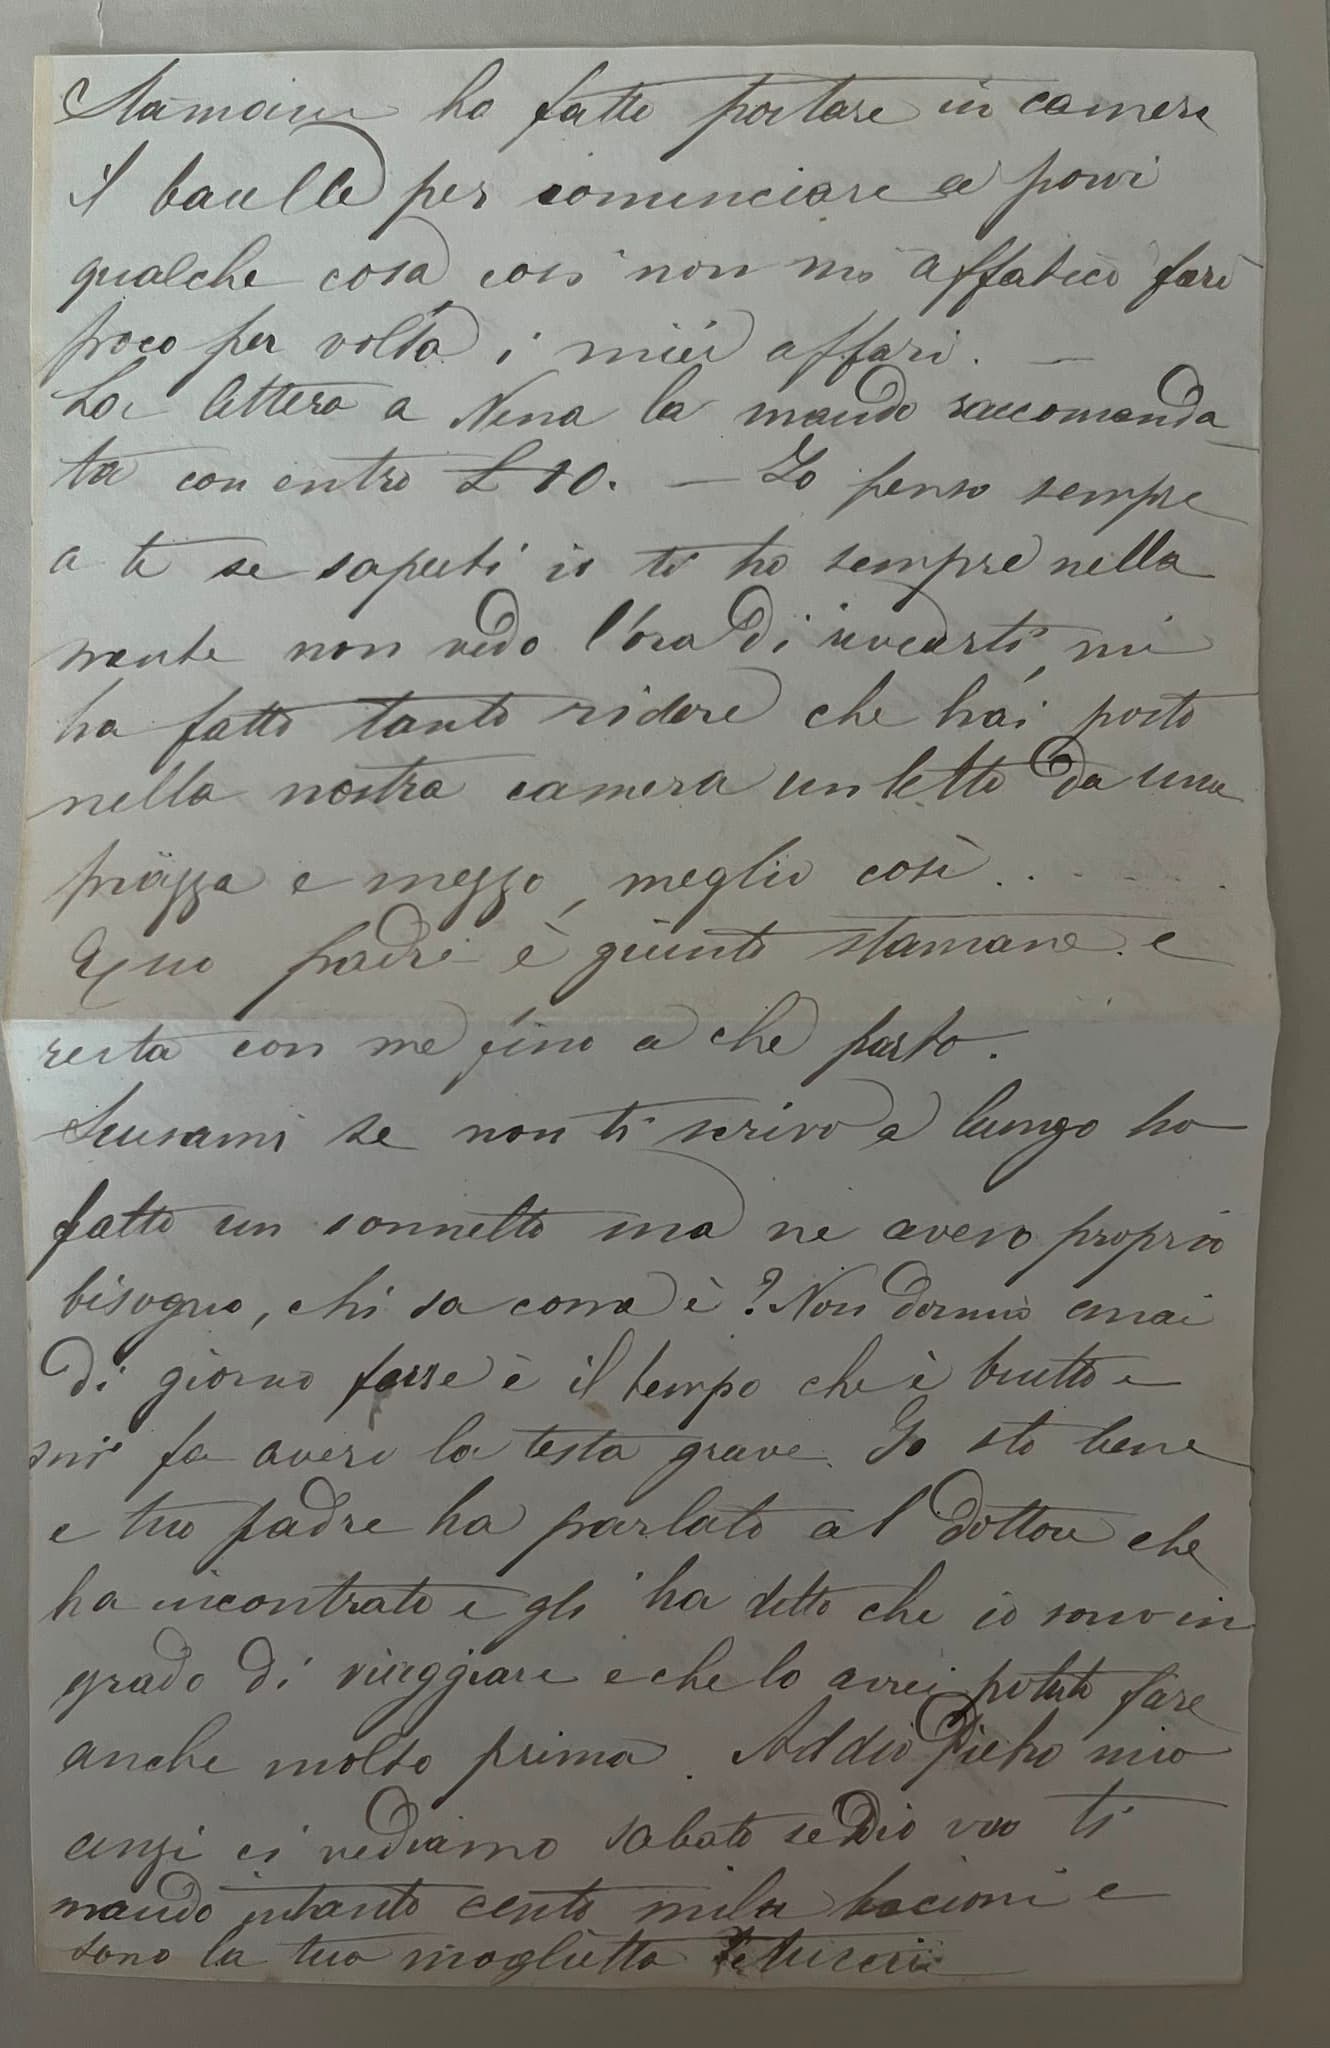 Stamani ho fatto portare in camera
il baulle per cominciare a porvi
qualche cosa così non mi affatico farò
poco per volta i miei affari. —
La lettera a Nena la mando raccomanda
ta con entro £ 10. — Io penso sempre
a te se sapesti io ti ho sempre nella
mente non vedo l'ora di rivederti, mi
ha fatto tanto ridere che hai posto
nella nostra camera un letto da una
piazza e mezzo, meglio così . . . . . . .
Tuo padre è giunto stamane e
resta con me fino a che parto.
Scusami se non ti scrivo a lungo ho
fatto un sonnetto ma ne avevo proprio
bisogno, chi sa come è? Non dormo mai
di giorno forse è il tempo che è brutto e
mi fa avere la testa grave. Io sto bene
e tuo padre ha parlato al dottore che
ha incontrato e gli ha detto che io sono in
grado di viaggiare e che lo avrei potuto fare
anche molto prima. Addio Pietro mio
anzi ci vediamo sabato se Dio vuo ti
mando intanto cento mila bacioni e
sono la tua moglietta